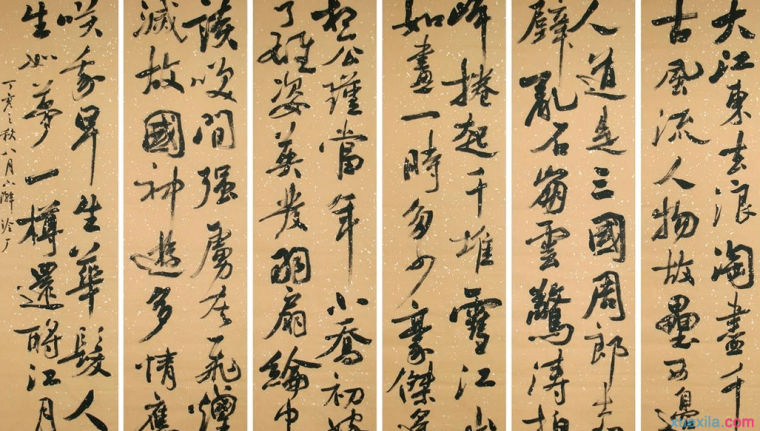 大江東去浪淘盡千
古風流人物故壘西邊
人道是三國周郎赤
壁亂石崩雲驚濤拍
岸捲起千堆雪江山
如畫一時多少豪傑遙
想公瑾當年小喬初嫁
了雄姿英發羽扇綸巾
談笑間強虜灰飛煙
滅故國神遊多情應
笑我早生華髮人
生如夢一樽還酹江月
丁亥之秋八月
xuexila.com